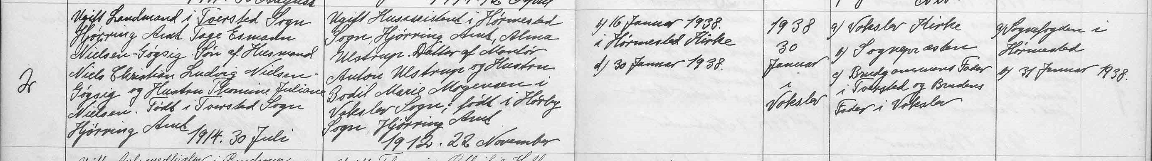 2
Ugift Landmand i Tversted Sogn
Hjørring Amt Tage Esmann
Nielsen-Gøgsig Søn af Husmand
Niels Christian Ludvig Nielsen-
Gøgsig og Hustru Thomine Juliane
Nielsen. Født i Tversted Sogn
Hjørring Amt 1914. 30 Juli
Ugift Husassistent i Hørmested
Sogn Hjørring Amt, Alma
Ulstrup. Datter af
Anton Ulstrup og Hustru
Bodil Marie Mogensen i
Vokslev Sogn, født i Hørby
Sogn Hjørring Amt
1912. 22 November
c) 16 Januar 1938.
i Hørmested Kirke
d) 30 Januar 1938.
1938
30
Januar
i
Vokslev
Vokslev Kirke
Sognepræsten
Brudgommens Fader
i Tversted og Brudens
Fader i Vokslev
g) Sognefogden i
Hørmested
31 Januar 1938.